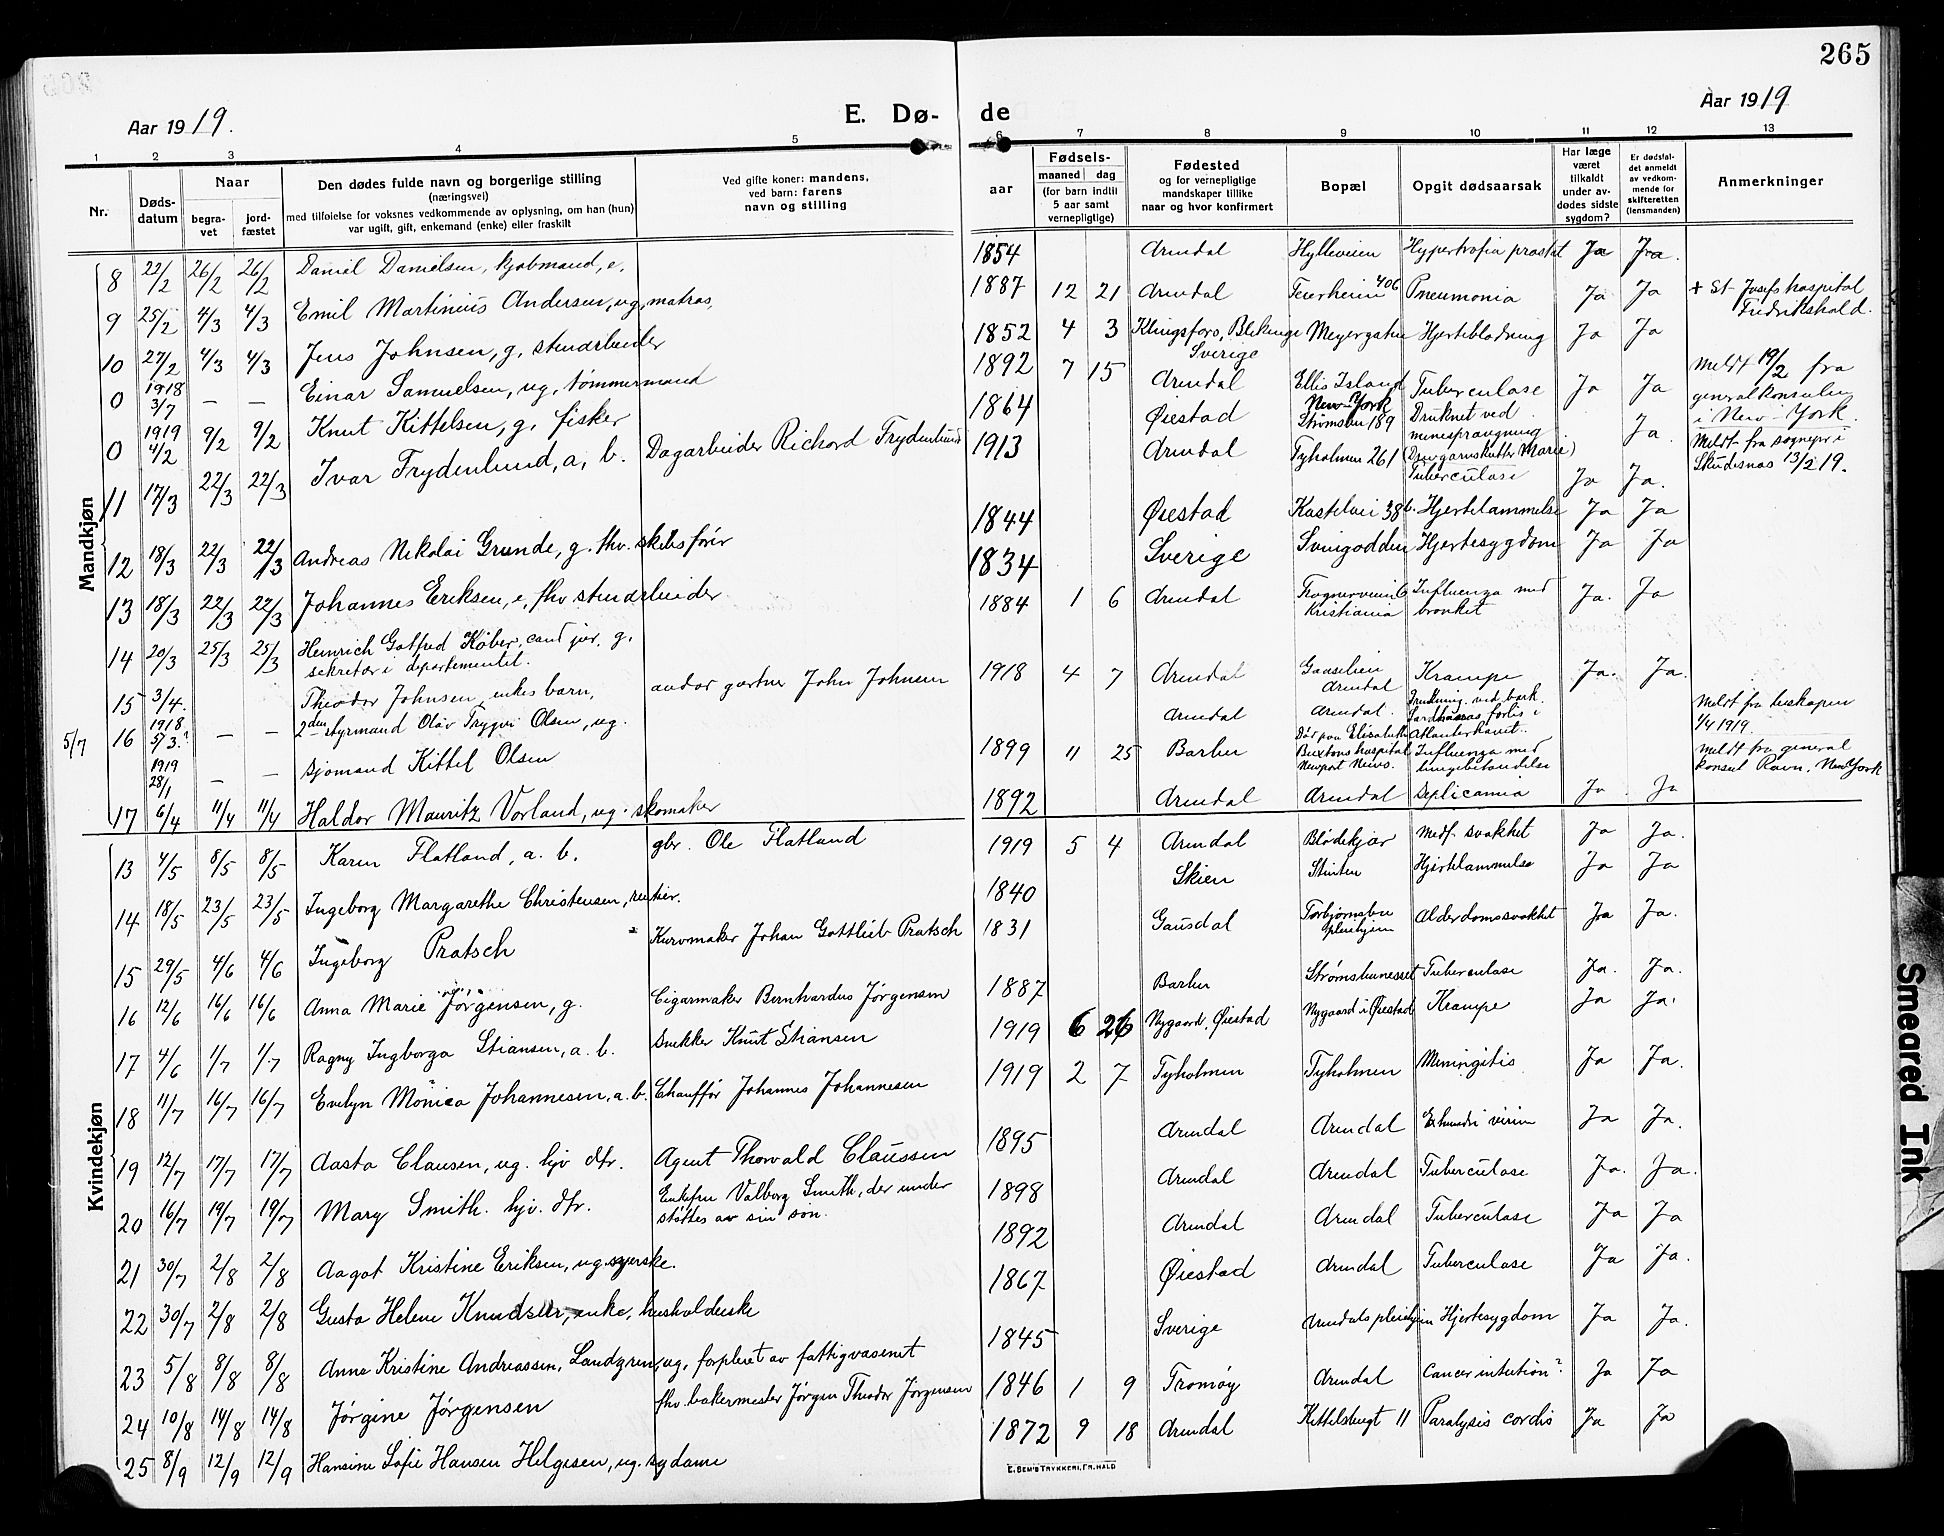 265
Aar 1919.
E. Dø- de
Aar 1919
1 2 3 4 5 6 7 8 9 10 11 12 13
Nr.
Døds-datum
Naar
begra-vet
jord-fæstet
Den dødes fulde navn og borgerlige stilling
(næringsvei)
med tilføielse for voksnes vedkommende av oplysning, om han (hun)
var ugift, gift, enkemand (enke) eller fraskilt
Ved gifte koner: mandens,
ved barn: farens
navn og stilling
aar
Fødsels-
maaned dag
(for barn indtil
5 aar samt
vernepligtige)
Fødested
og for vernepligtige
mandskaper tillike
naar og hvor konfirmert
Bopæl
Opgit dødsaarsak
Har læge
været
tilkaldt
under av-
dødes sidste
sygdom?
Er dødsfal-
det anmeldt
av vedkom-
mende for
skifteretten
(lensmanden)
Anmerkninger
Mandkjøn
8 22/2 26/2 26/2 Daniel Danielsen, kjøbmand, e. 1854 Arendal Hylleveien Hypertrofia prostat Ja Ja.
9 25/2 4/3 4/3 Emil Martinius Andersen, ug, matros, 1887 12 21 Arendal 406 Pneumonia Ja Ja + St Josefs hospital Fredrikshald.
10 27/2 4/3 4/3 Jens Johnsen, g, stenarbeider 1852 4 3 Klingsfors, Blekinge Sverige Meyergaten Hjerteblødning Ja Ja
0 1918 3/7 — — Einar Samuelsen, ug, tømmermand 1892 7 15 Arendal Ellis Island New-York Tuberculose Ja Ja Meldt 19/2 fra generalkonsulen i New-York.
0 1919 4/2 9/2 9/2 Knut Kittelsen, g, fisker 1864 Øiestad Strømsbu 189 Druknet ved minesprængning Marie) Ja. Meldt fra sognepr i Skudesnæs 13/2 19.
11 17/3 22/3 22/3 Ivar Frydenlund, a, b. Dagarbeider Richard Frydenlund 1913 Arendal Tyholmen 261 Tuberculose Ja Ja.
12 18/3 22/3 22/3 Andreas Nikolai Grunde, g. fhv. skibsfører 1844 Øiestad Kastelvei 38 b. Hjertelammelse Ja Ja
13 18/3 22/3 22/3 Johannes Eriksen, e, fhv stenarbeider 1834 Sverige Svingodden Hjertesygdom Ja Ja
14 20/3 25/3 25/3 Heinrich Gotfred Køber, cand jur, g. sekretær i departementet. 1884 1 6 Arendal Kristiania Influenza med bronkit Ja. Ja
15 3/4. Theodor Johnsen, enkes barn, andør gartner John Johnsen 1918 4 7 Arendal Gaaselien Arendal Krampe Ja. Ja.
5/7 16 1918 5/3.? — — 2den styrmand Olav Trygve Olsen, ug. Arendal Arendal. Drukning. ved bark. forlis i Atlanterhavet. Meldt fra biskopen 1/4 1919.
1919 28/1 — — sjømand Kittel Olsen 1899 11 25 Barbu Død paa Elisabeth Buxtons hospital Newport News. Influenza med lungebetændelse Meldt fra general konsul Ravn, New York
17 6/4 11/4 11/4 Haldor Mauritz Vorland, ug. skomaker 1892 Arendal Arendal Septicæmia Ja Ja
Kvindekjøn
13 4/5 8/5 8/5 Karen Flatland, a. b. gbr. Ole Flatland 1919 5 4 Arendal Blødekjær Medf. svakhet Ja Ja.
14 18/5 23/5 23/5 Ingeborg Margarethe Christensen, rentier. 1840 Skien Stinten Hjertelammelse Ja Ja
15 29/5 4/6 4/6 Ingeborg Pratsch Kurvmaker Johan Gottlieb Pratsch 1831 Gausdal Torbjørnsbu pleiehjem Alderdomssvakhet Ja Ja.
16 12/6 16/6 16/6 Anna Marie Jørgensen, g. Cigarmaker Bernhardus Jørgensen 1887 Barbu Strømsbunesset Tuberculose Ja. Ja.
17 4/6 1/7 1/7 Ragny Ingborga Stiansen, a. b. Snekker Knut Stiansen 1919 6 26 Nygaard, Øiestad Nygaard i Øiestad Krampe Ja Ja.
18 11/7 16/7 16/7 Evelyn Monica Johannesen, a. b. Chauffør Johannes Johannesen 1919 2 7 Tyholmen Tyholmen Meningitis Ja Ja.
19 12/7 17/7 17/7 Aasta Clausen, ug. hjv dtr. Agent Thorvald Claussen 1895 Arendal Arendal Ja Ja.
20 16/7 19/7 19/7 Mary Smith. hjv. dtr. Enkefru Valborg Smith, der under støttes av sin søn. 1898 Arendal Arendal Tuberculose Ja. Ja.
21 30/7 2/8 2/8 Aagot Kristine Eriksen, ug. syerske. 1892 Arendal Arendal Tuberculose Ja Ja
22 30/7 2/8 2/8 Gusta Helene Knudsen, enke, husholderske 1867 Øiestad Arendal Tuberculose Ja Ja.
23 5/8 8/8 8/8 Anna Kristine Andreassen, Landgren, ug, forpleiet av fattigvæsenet 1845 Sverige Arendals pleiehjem Hjertesygdom Ja Ja.
24 10/8 14/8 14/8 Jørgine Jørgensen fhv. bakermester Jørgen Theodor Jørgensen 1846 1 9 Tromøy Arendal Cancer Ja Ja
25 8/9 12/9 12/9 Hansine Sofie Hansen Helgesen, ug. sydame 1872 9 18 Arendal Kittelsbugt 11 Paralysis cordis Ja Ja
E. SEM'S TRYKKERI, FR.HALD
Smeared Ink